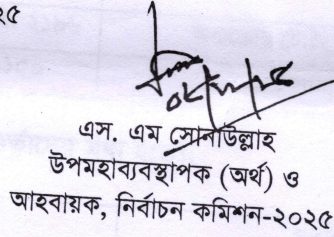 ২৫
এস. এম সোনাউল্লাহ
উপমহাব্যবস্থাপক (অর্থ) ও
আহবায়ক, নির্বাচন কমিশন-২০২৫